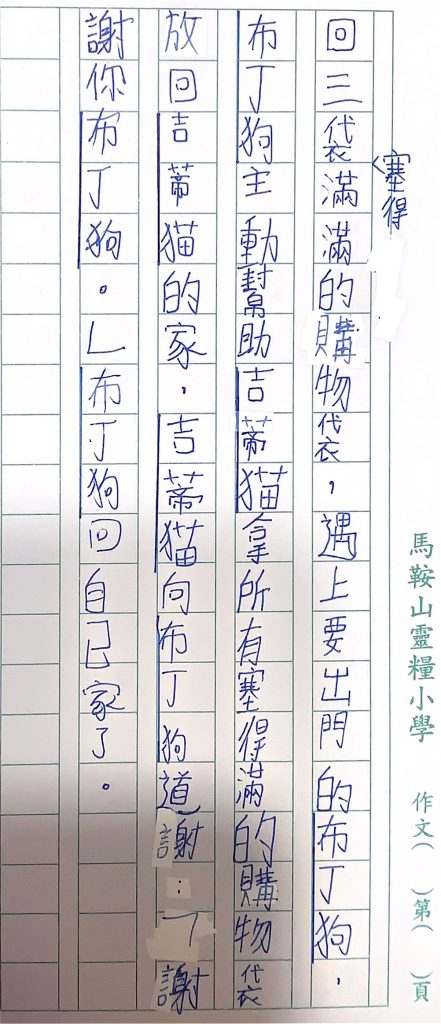 馬鞍山靈糧小學 作文( )第( )頁
塞得
回三袋滿滿的購物袋，遇上要出門的布丁狗，
布丁狗主動幫助吉蒂猫拿所有塞得滿的購物袋
放回吉蒂猫的家，吉蒂猫向布丁狗道謝：「謝
謝你布丁狗。」布丁狗回自己家了。